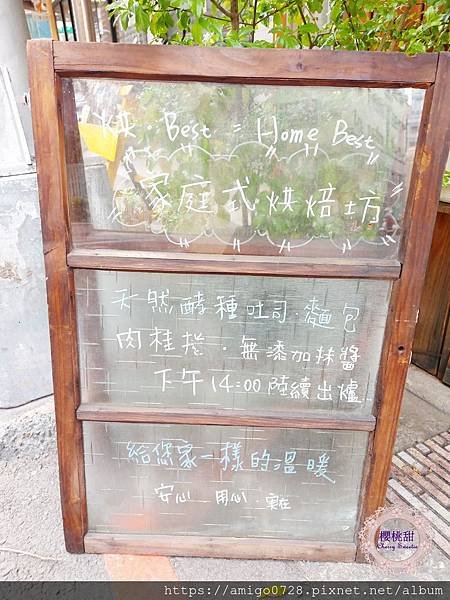 烘.Best = Home Best
家庭式烘焙坊
天然酵種吐司.麵包
肉桂捲.無添加抹醬
下午14:00陸續出爐
給您家一樣的溫暖
安心 用心.實在
櫻桃甜
Cherry Sweetie
https://amigo0728.pixnet.net/album